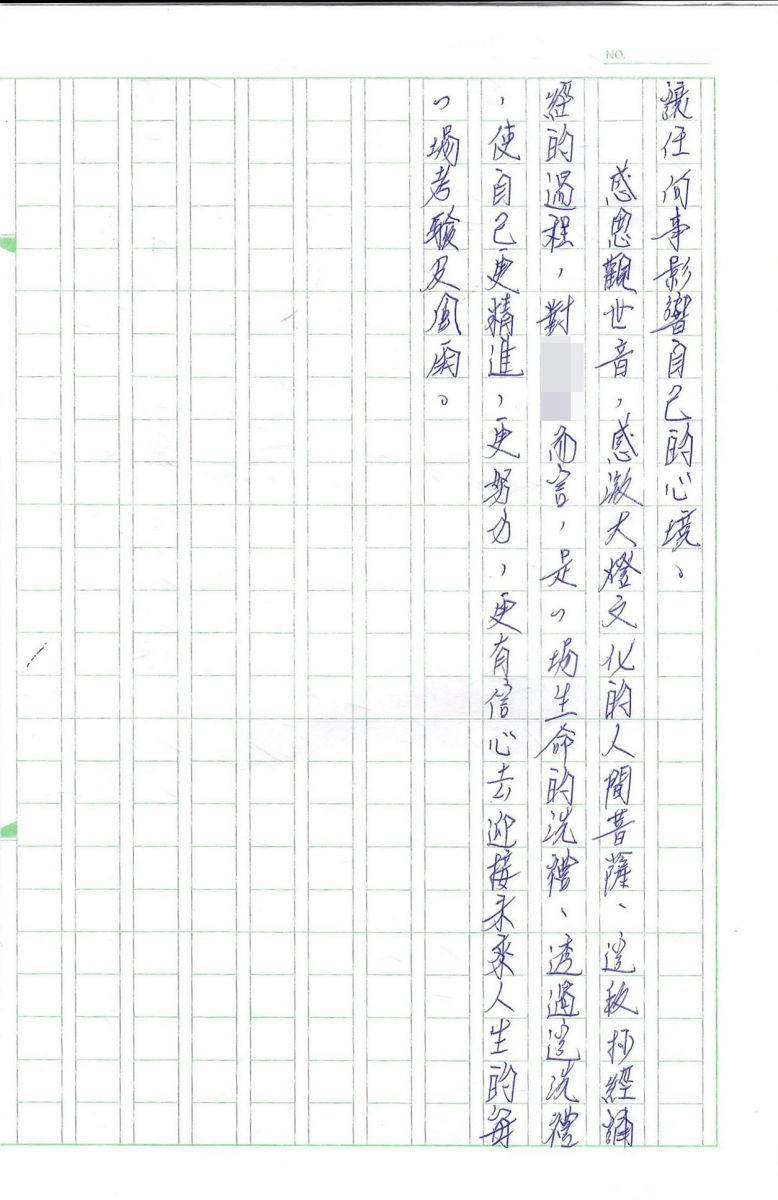 NO.
讓任何事影響自己的心境。
感恩觀世音，感激大燈文化的人間菩薩、這段抄經誦
經的過程，對
而言，是一場生命的洗禮、透過這洗禮
，使自己更精進，更努力，更有信心去迎接未來人生的每
一場考驗及風雨。